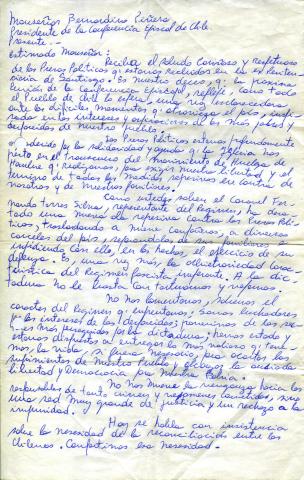 Monseñor Bernardino Piñera
Presidente de la Conferencia Episcopal de Chile
Presente.-
Estimado Monseñor:
Reciba el saludo cariñoso y respetuoso
de los Presos Políticos q. estamos recluidos en la ex Peniten
ciaría de Santiago. Es nuestro deseo q. la próxima
reunión de la Conferencia Episcopal, refleje, como todo
el Pueblo de Chile lo espera, una voz esclarecedora
ante los difíciles momentos q. atraviesa el país, inspi
rada en los intereses y aspiraciones de los más pobres y
de nuestro pueblo.
Los Presos Políticos estamos
por la solidaridad y ayuda q. la Iglesia nos
en el transcurso del movimiento de Huelga de
Hambre q. realizamos, por exigir nuestra libertad y el
término de todas las medidas represivas en contra de
nosotros y de nuestros familiares.
Como Usted sabe, el Coronel Fer-
nando Torres Silva, representante del Régimen, ha desa-
tado una nueva ola represiva contra los Presos Polí-
ticos, trasladando a nueve compañeros, a diversas
cárceles del país, separándolos de sus familiares e
impidiendo con ello, en los hechos, el ejercicio de su
defensa. Es, una vez más, la arbitrariedad carac-
terística del Régimen fascista imperante. A la dic-
tadura No le basta con torturarnos y vejarnos.
No nos lamentamos, sabemos el
caracter del Régimen q. enfrentamos. Somos luchadores
por los intereses de los desposeídos; provenimos de los sec-
más perseguidos por la dictadura; hemos estado y
estamos dispuestos a entregar lo más valioso q. tene-
mos, la vida, si fuera necesario, para acortar los
sufrimientos de Nuestro Pueblo, y alcanzar la ansiada
libertad y Democracia para Nuestra Patria.
No nos mueve la venganza hacia los
responsables de tanto crimen y vejámenes cometidos, sino
una sed muy grande de justicia y un rechazo a la
impunidad.
Hoy se habla con insistencia
sobre la necesidad de la reconciliación entre los
chilenos. Compartimos esa necesidad.